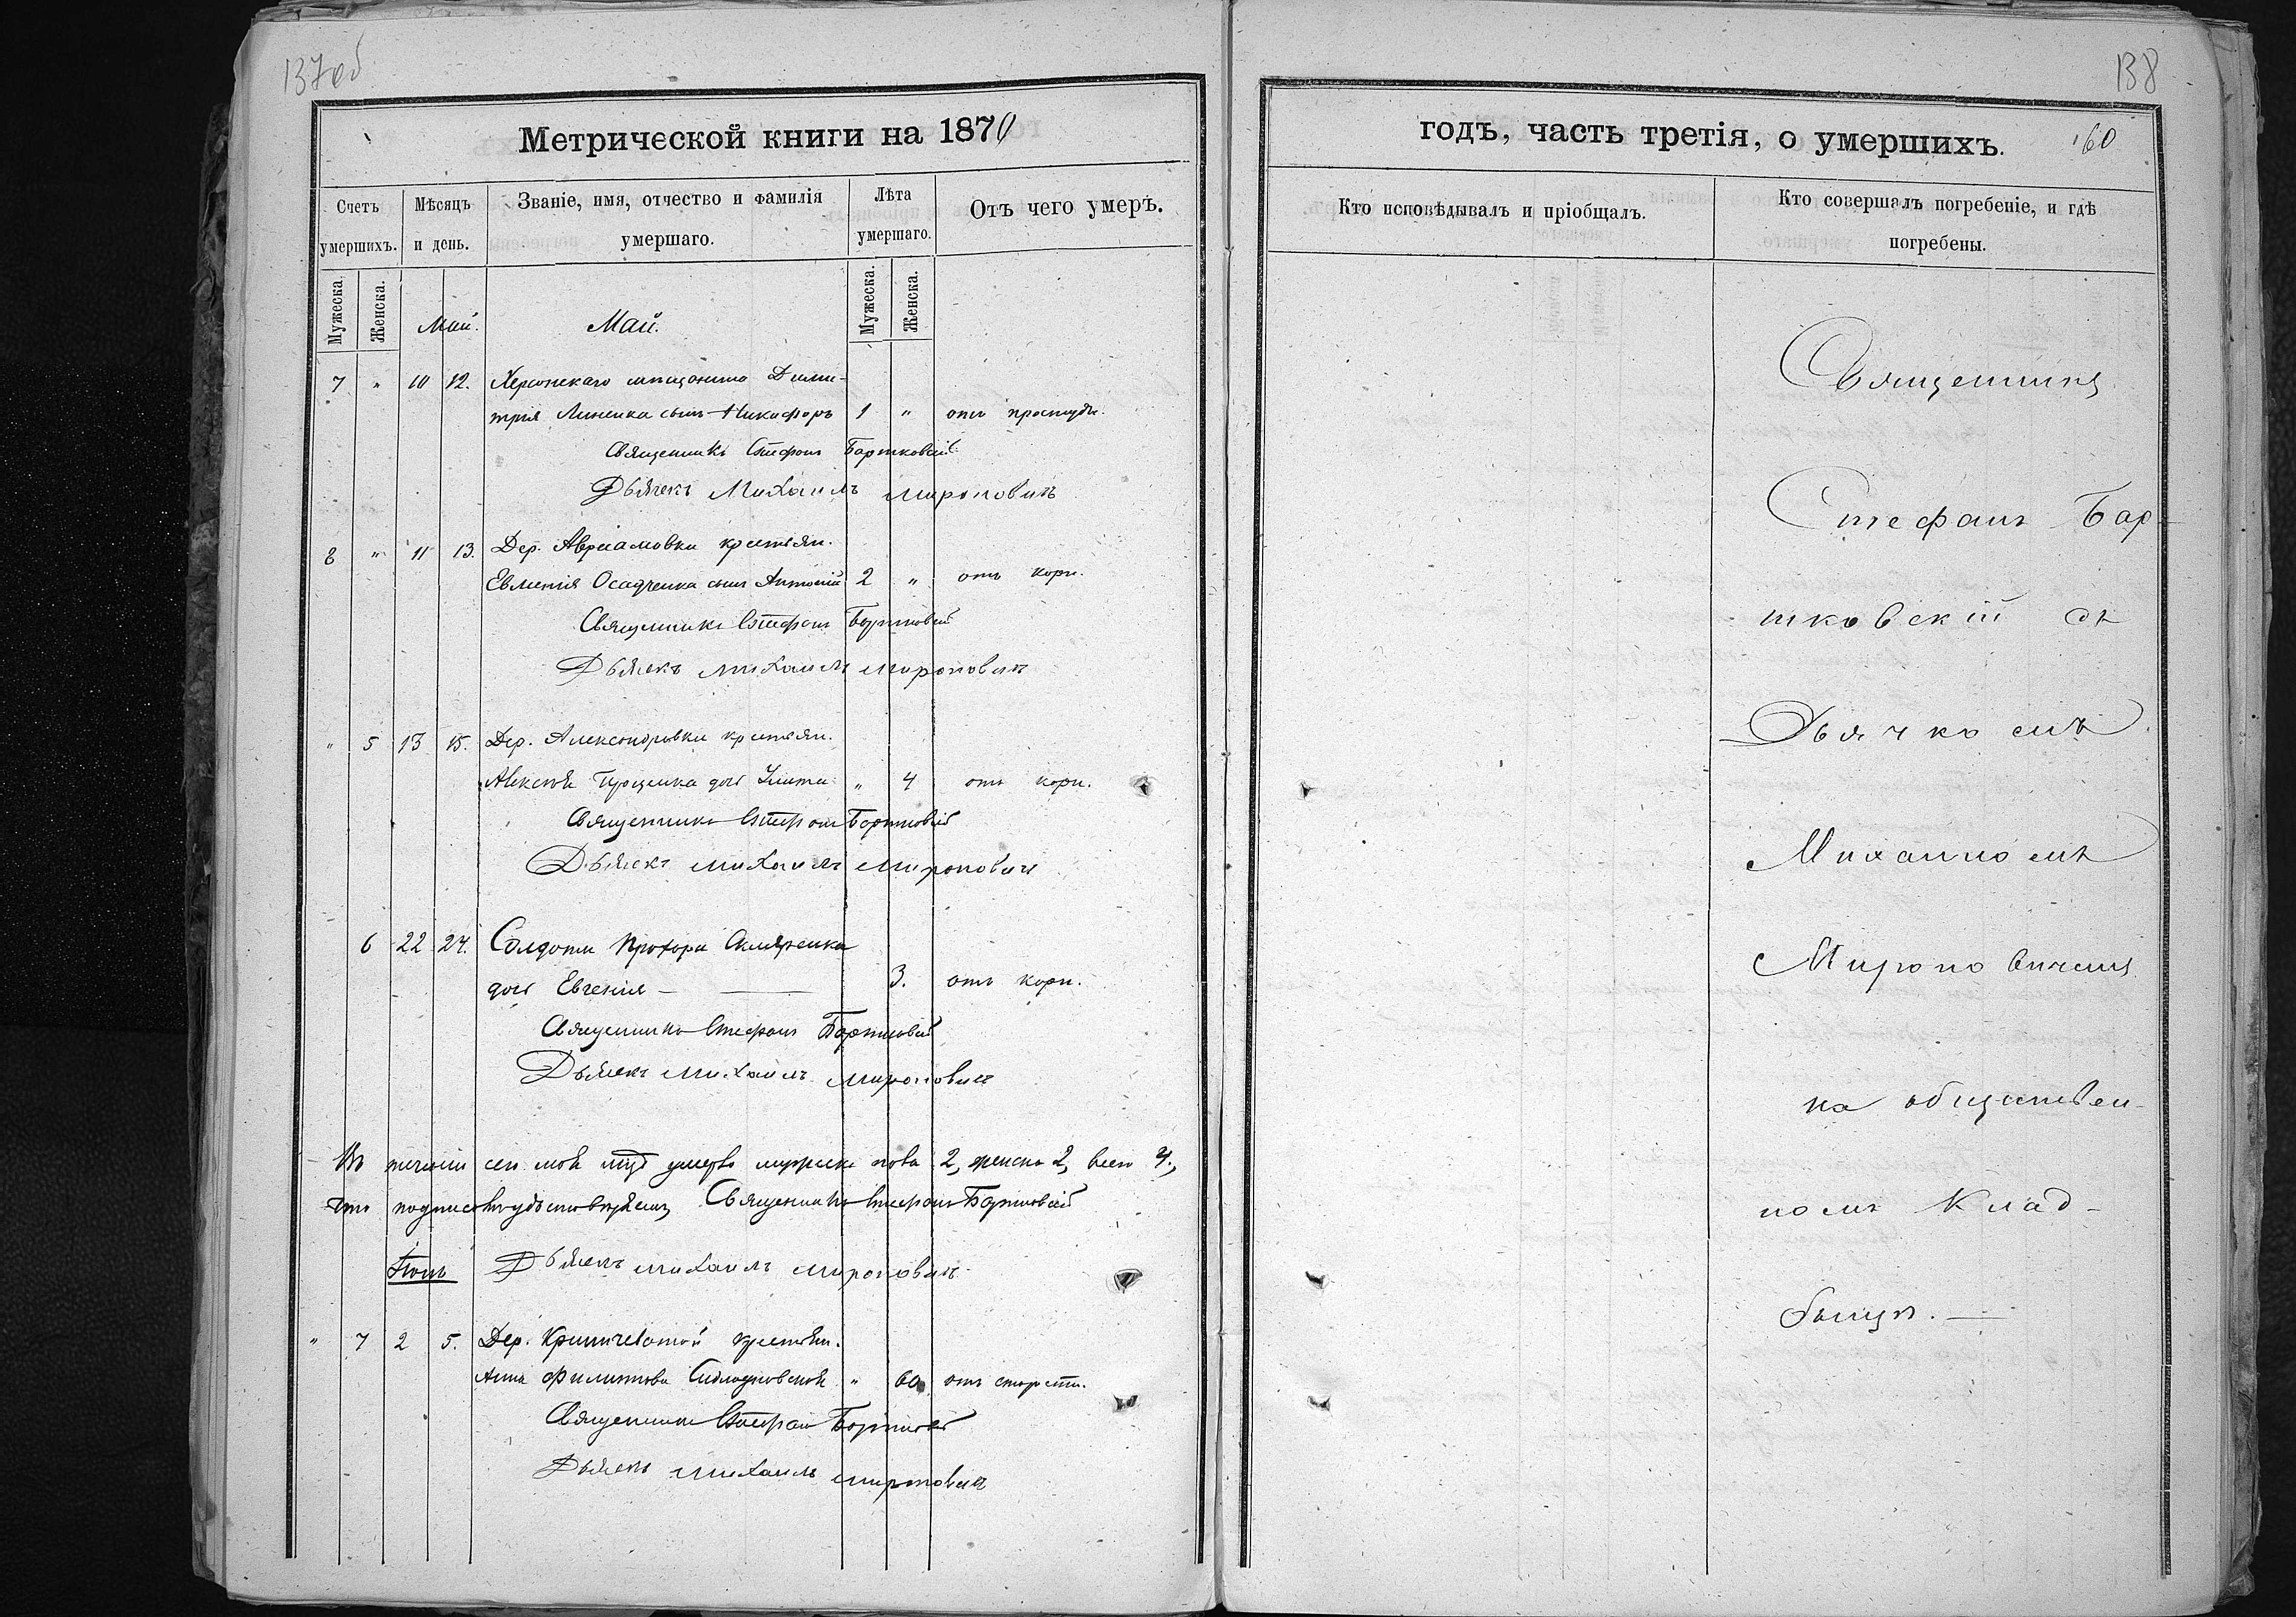 137 об
Метрической книги на 1870
Счетъ умершихъ.
Мѣсяцъ и день.
Званіе, имя, отчество и фамилія умершаго.
Лѣта умершаго.
Отъ чего умеръ.
Мужеска.
Женска.
Мужеска.
Женска.
Май.
Май.
7 " 10 12. Херсонскаго мѣщанина Дими-
трія Линника сынъ Никифоръ 1 " отъ простуды.
Священникъ Стефанъ Бартковскій
Дьячекъ Михаилъ Мироновичъ
8 " 11 13. Дер. Авраамовки крестьян.
Евменія Осадченка сынъ Антоній 2 " отъ кори.
Священникъ Стефанъ Бартковскій
Дьячекъ Михаилъ Мироновичъ
" 5 13 15. Дер. Александровки крестьян.
Алексѣя Проценка дочь Улита " 4 отъ кори.
Священникъ Стефанъ Бартковскій
Дьячекъ Михаилъ Мироновичъ
6 22 24. Солдата Прохора Скляренка
дочь Евгенія — 3. отъ кори.
Священникъ Стефанъ Бартковскій
Дьячекъ Михаилъ Мироновичъ
Въ теченіи сего умерло мужеска пола 2, женска 2, всего 4.,
Священникъ Стефанъ Бартковскій
Іюнь Дьячекъ Михаилъ Мироновичъ
" 7 2 5. Дер. Криничеватой крестьян.
Анна Филиппова " 60 отъ старости.
Священникъ Стефанъ Бартковскій
Дьячекъ Михаилъ Мироновичъ
138
годъ, часть третія, о умершихъ. 160
Кто исповѣдывалъ и пріобщалъ.
Кто совершалъ погребеніе, и гдѣ погребены.
Священникъ
Стефанъ Бар-
тковскій съ
Дьячкомъ
Михаиломъ
Мироновичемъ
на обществен-
номъ клад-
бищѣ. —